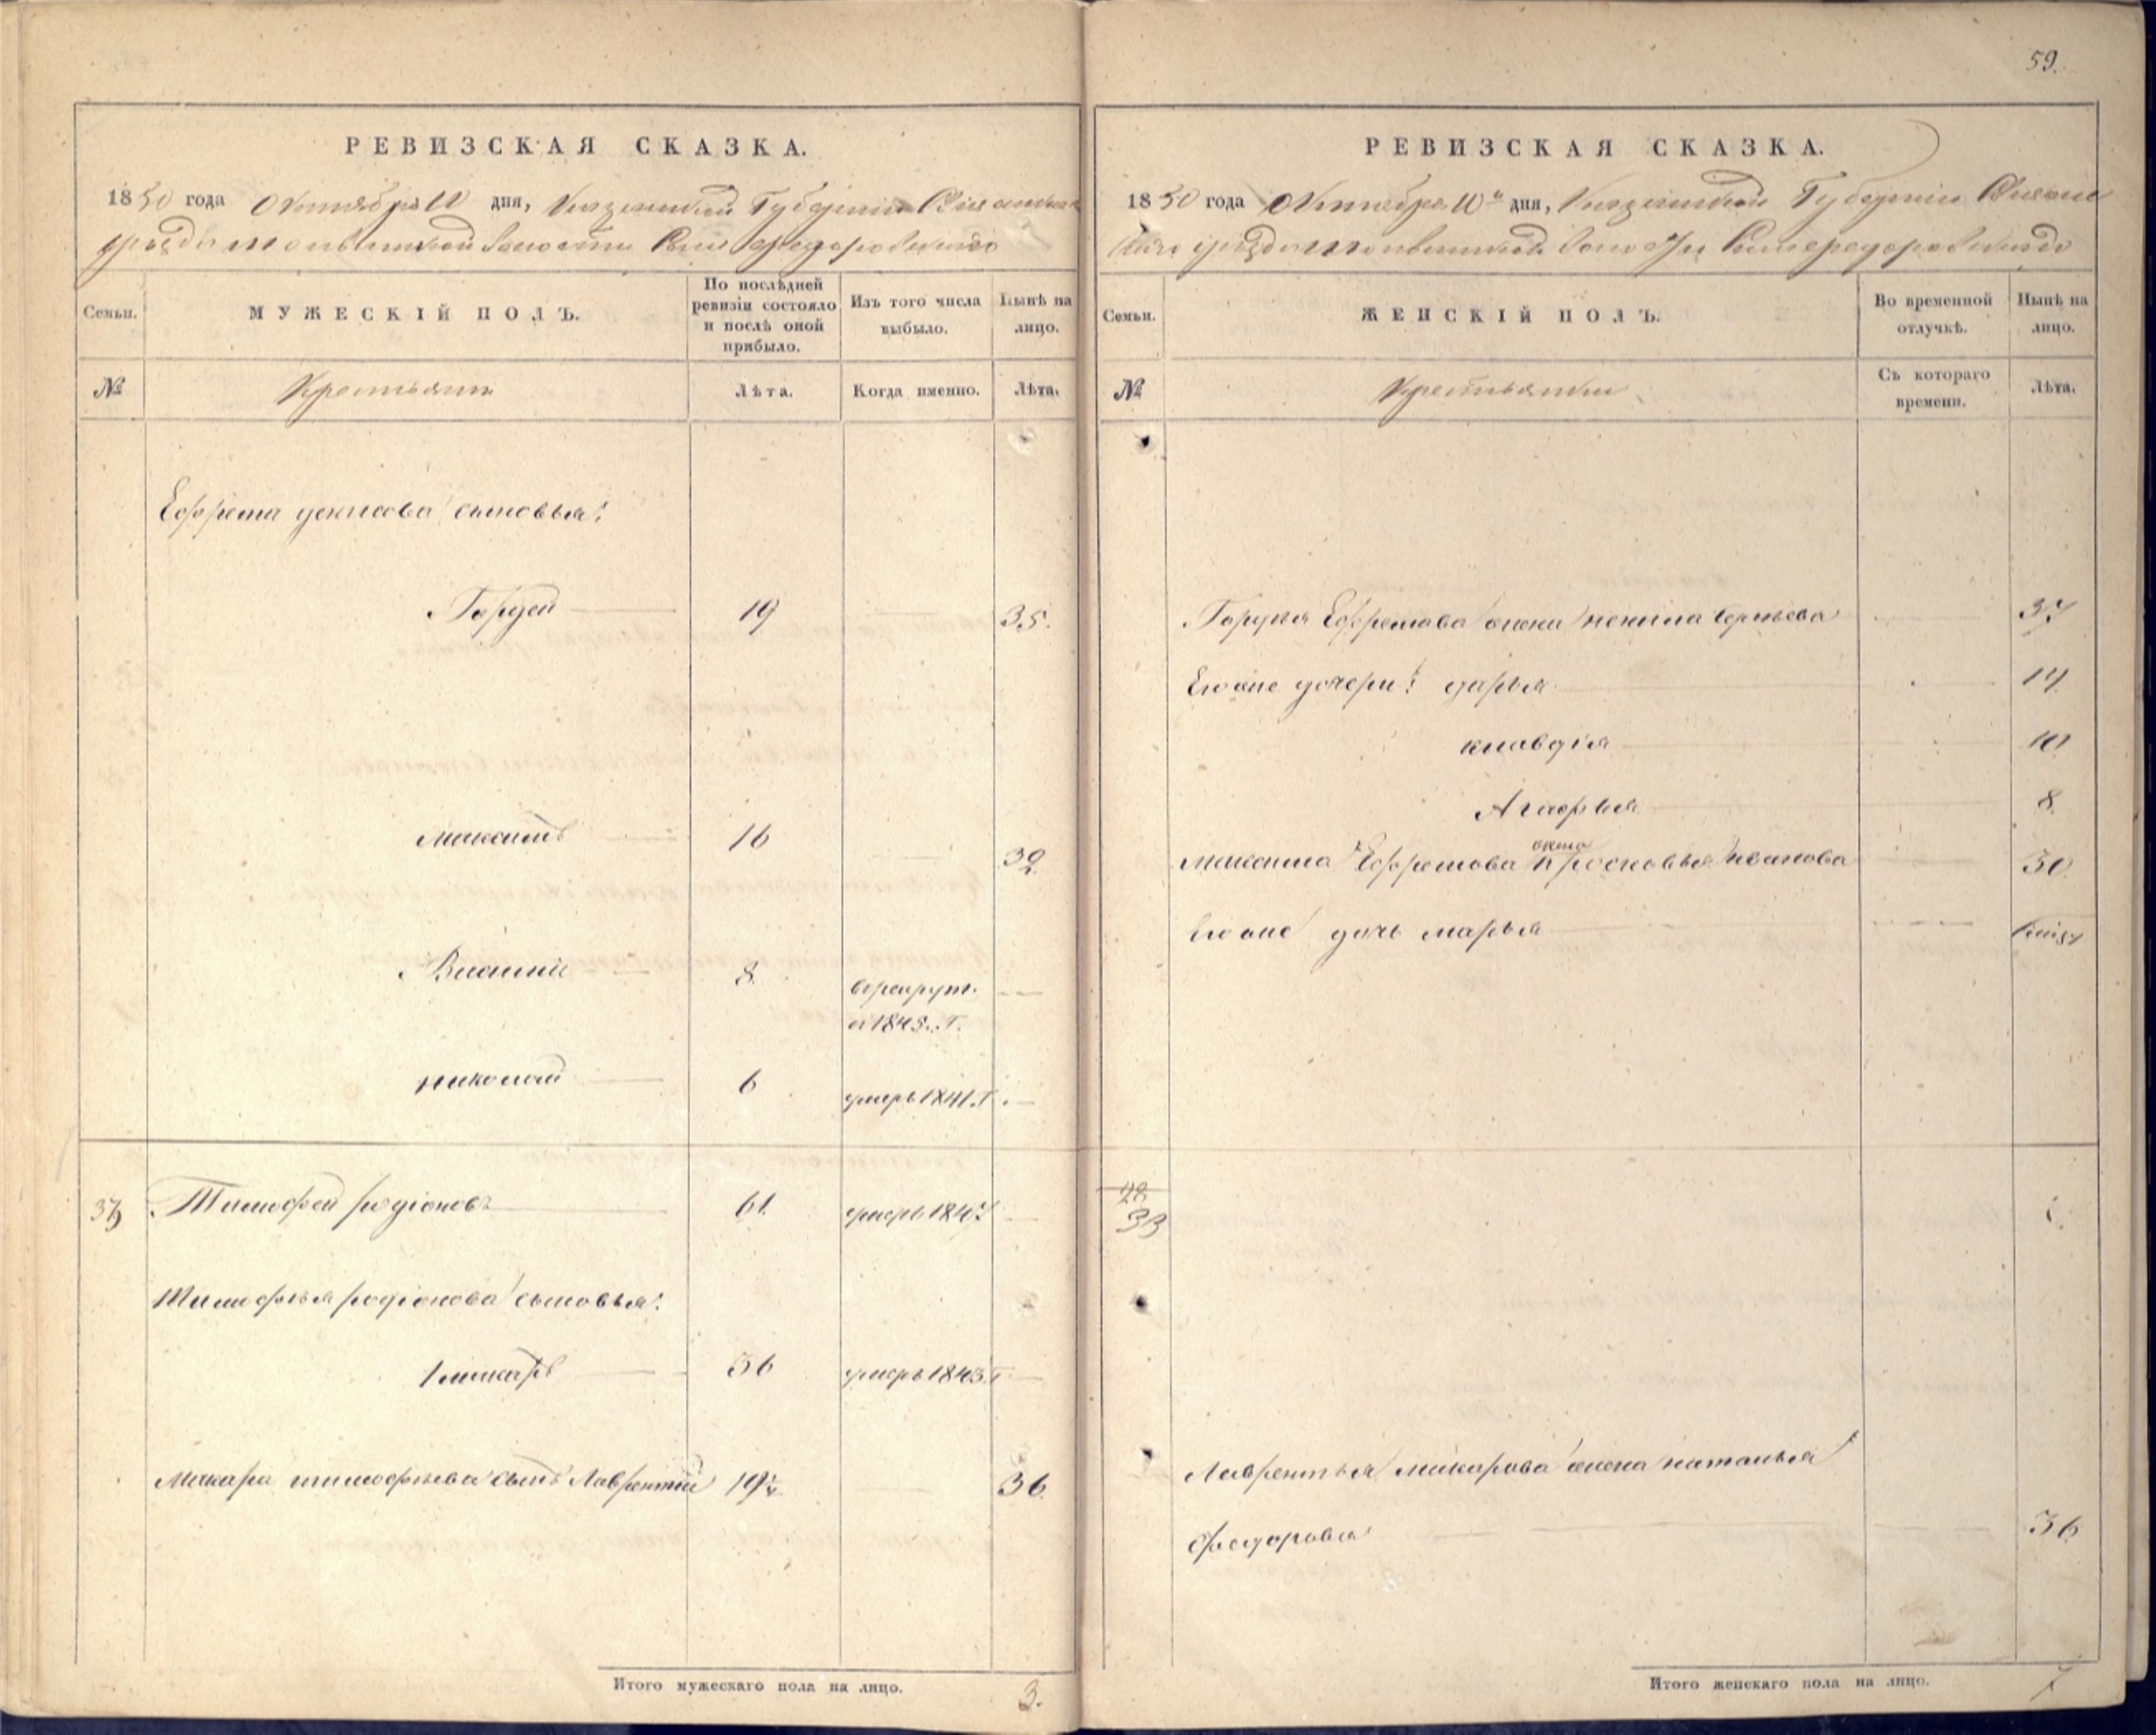 59.
РЕВИЗСКАЯ СКАЗКА.
1850 года Октября 10 дня, Казанской Губерніи
уѣзда волости
Семьи.
МУЖЕСКІЙ ПОЛЪ.
По послѣдней ревизіи состояло и послѣ оной прибыло.
Изъ того числа выбыло.
Нынѣ на лицо.
№
Крестьяне
Лѣта.
Когда именно.
Лѣта.
Ефрема сыновья:
Гордей 19 35.
Максимъ 16 32
Василій 8 врекрут. в 1845. Г.
николай 6 умеръ 1841. Г.
Тимофей родіоновъ 61 умеръ 1847
Тимофѣя родіонова сыновья:
1 макаръ 56 умеръ 1843. Г.
Макара тимофѣева сынъ Лаврентій 19½ 36
Итого мужескаго пола на лицо. 3.
РЕВИЗСКАЯ СКАЗКА.
1850 года Октября 10го дня, Казанской Губерніи
уѣзда волости
Семьи.
ЖЕНСКІЙ ПОЛЪ.
Во временной отлучкѣ.
Нынѣ на лицо.
№
Крестьянки
Съ котораго времени.
Лѣта.
Гордея Ефремова жена ненила 37
Его же дочери: дарья 14
клавдія 10
Агафья 8
Максима Ефремова жена просковья иванова 30
Его же дочь марья
28
33
Лаврентья макарова жена наталья
федорова 36
Итого женскаго пола на лицо. 7